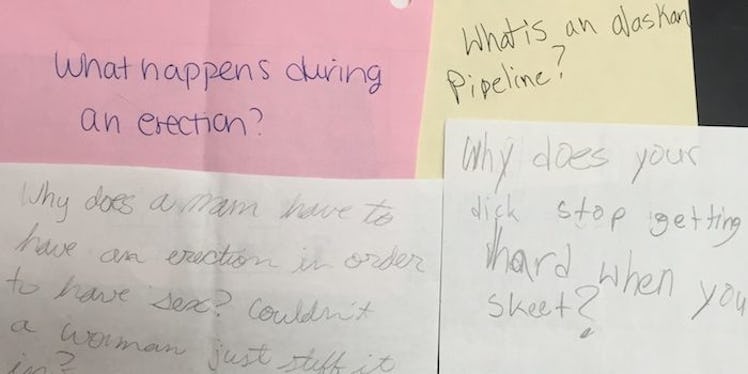 What happens during
an erection?
What is an alaskan
Pipeline?
Why does a mam have to
have an erection in order
to have sex? Couldn't
a woman just stuff it
in?
Why does your
dick stop getting
hard when you
skeet?